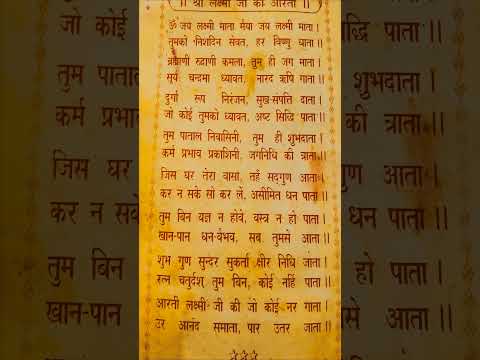 ॥ श्री लक्ष्मी जी की आरती ॥
ॐ जय लक्ष्मी माता मैया जय लक्ष्मी माता ।
तुमको निशदिन सेवत, हर विष्णु धाता ॥
ब्रह्माणी रुद्राणी कमला, तुम ही जग माता ।
सूर्य चन्द्रमा ध्यावत, नारद ऋषि गाता ॥
दुर्गा रूप निरंजन, सुख-संपति दाता ।
जो कोई तुमको ध्यावत, अष्ट सिद्धि पाता ॥
तुम पाताल निवासिनी, तुम ही शुभदाता ।
कर्म प्रभाव प्रकाशिनी, जगनिधि की त्राता ॥
जिस घर तेरा वासा, तहँ सद्गुण आता ।
कर न सके सो कर ले, असीमित धन पाता ॥
तुम बिन यज्ञ न होवे, वस्त्र न हो पाता ।
खान-पान धन-वैभव, सब तुमसे आता ॥
शुभ गुण सुन्दर सुकर्ता क्षीर निधि जाता ।
रत्न चतुर्दश् तुम बिन, कोई नहिं पाता ॥
आरती लक्ष्मी जी की जो कोई नर गाता ।
उर आनंद समाता, पार उतर जाता ॥